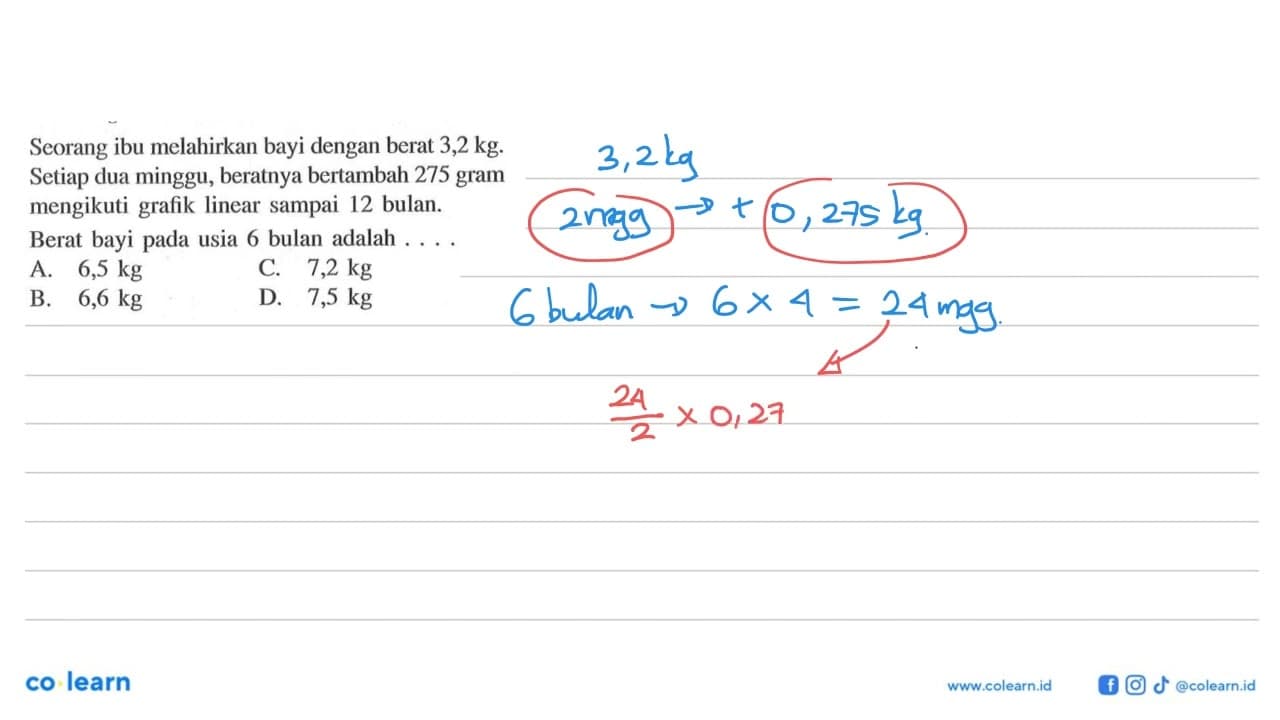 Seorang ibu melahirkan bayi dengan berat 3,2 kg.
Setiap dua minggu, beratnya bertambah 275 gram
mengikuti grafik linear sampai 12 bulan.
Berat bayi pada usia 6 bulan adalah . . . .
A. 6,5 kg C. 7,2 kg
B. 6,6 kg D. 7,5 kg
3,2 kg
2 mgg → + 0,275 kg.
6 bulan → 6 × 4 = 24 mgg.
24/2 × 0,27
co learn
www.colearn.id @colearn.id